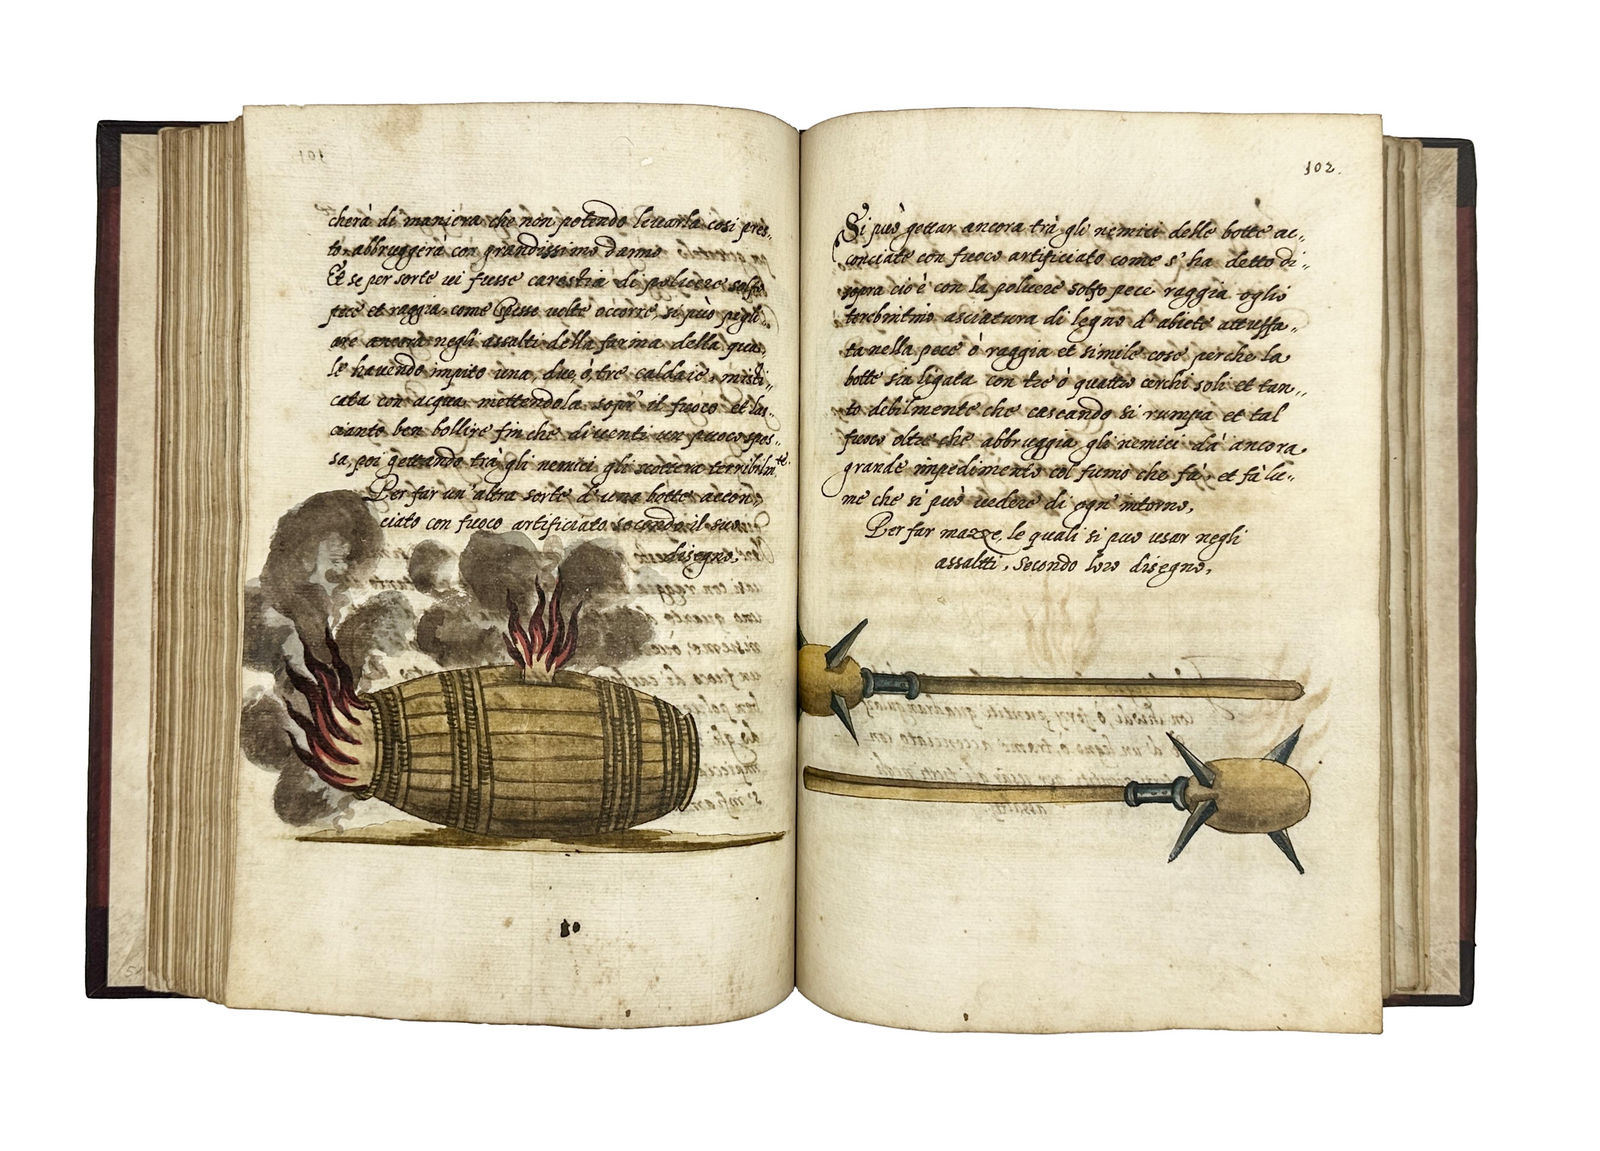 cherà di maniera che non potendo levarla così pres„
to abbruggerà con grandissimo danno
Et se per sorte vi fusse carestia di polvere solfo
pece et raggia come spesse volte occorre, si può pigli„
are ancora negli assalti della farina della qua„
le havendo impito una, due, ò, tre caldaie, misti„
cata con acqua mettendola sopra il fuoco et las„
ciante ben bollire fin che diventi un puoco spes„
sa, poi gettando trà gli nemici gli scotterà terribilmte.
Per far un'altra sorte d'una botte accon„
ciato con fuoco artificiato secondo il suo
disegno,
102.
Si può gettar ancora trà gli nemici delle botte ac„
conciate con fuoco artificiato come s'ha detto di„
sopra cio è con la polvere solfo pece raggia oglio
terebintino asciatura di legno d'abiete attuffa„
ta nella pece ò raggia et simile cose perche la
botte sia ligata con tre ò quattro cerchi soli et tan„
to debilmente che cascando si rumpa et tal
fuoco oltre che abbruggia gli nemici dà ancora
grande impedimento col fumo che fà, et fà lu„
me che si può vedere di ogn'intorno,
Per far mazze, le quali si può usar negli
assaltti, secondo loro disegno,